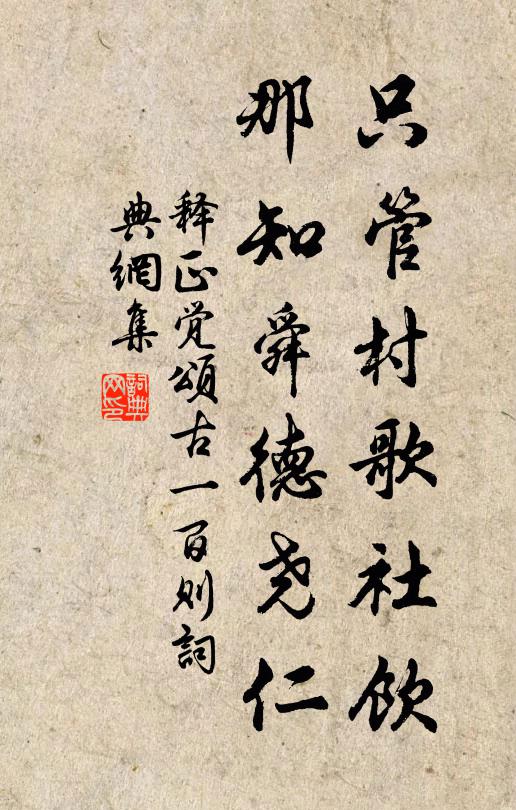 只管村歌社飲
那知舜德尧仁
释正觉頌古一百则詞
典網集
詞典
网印